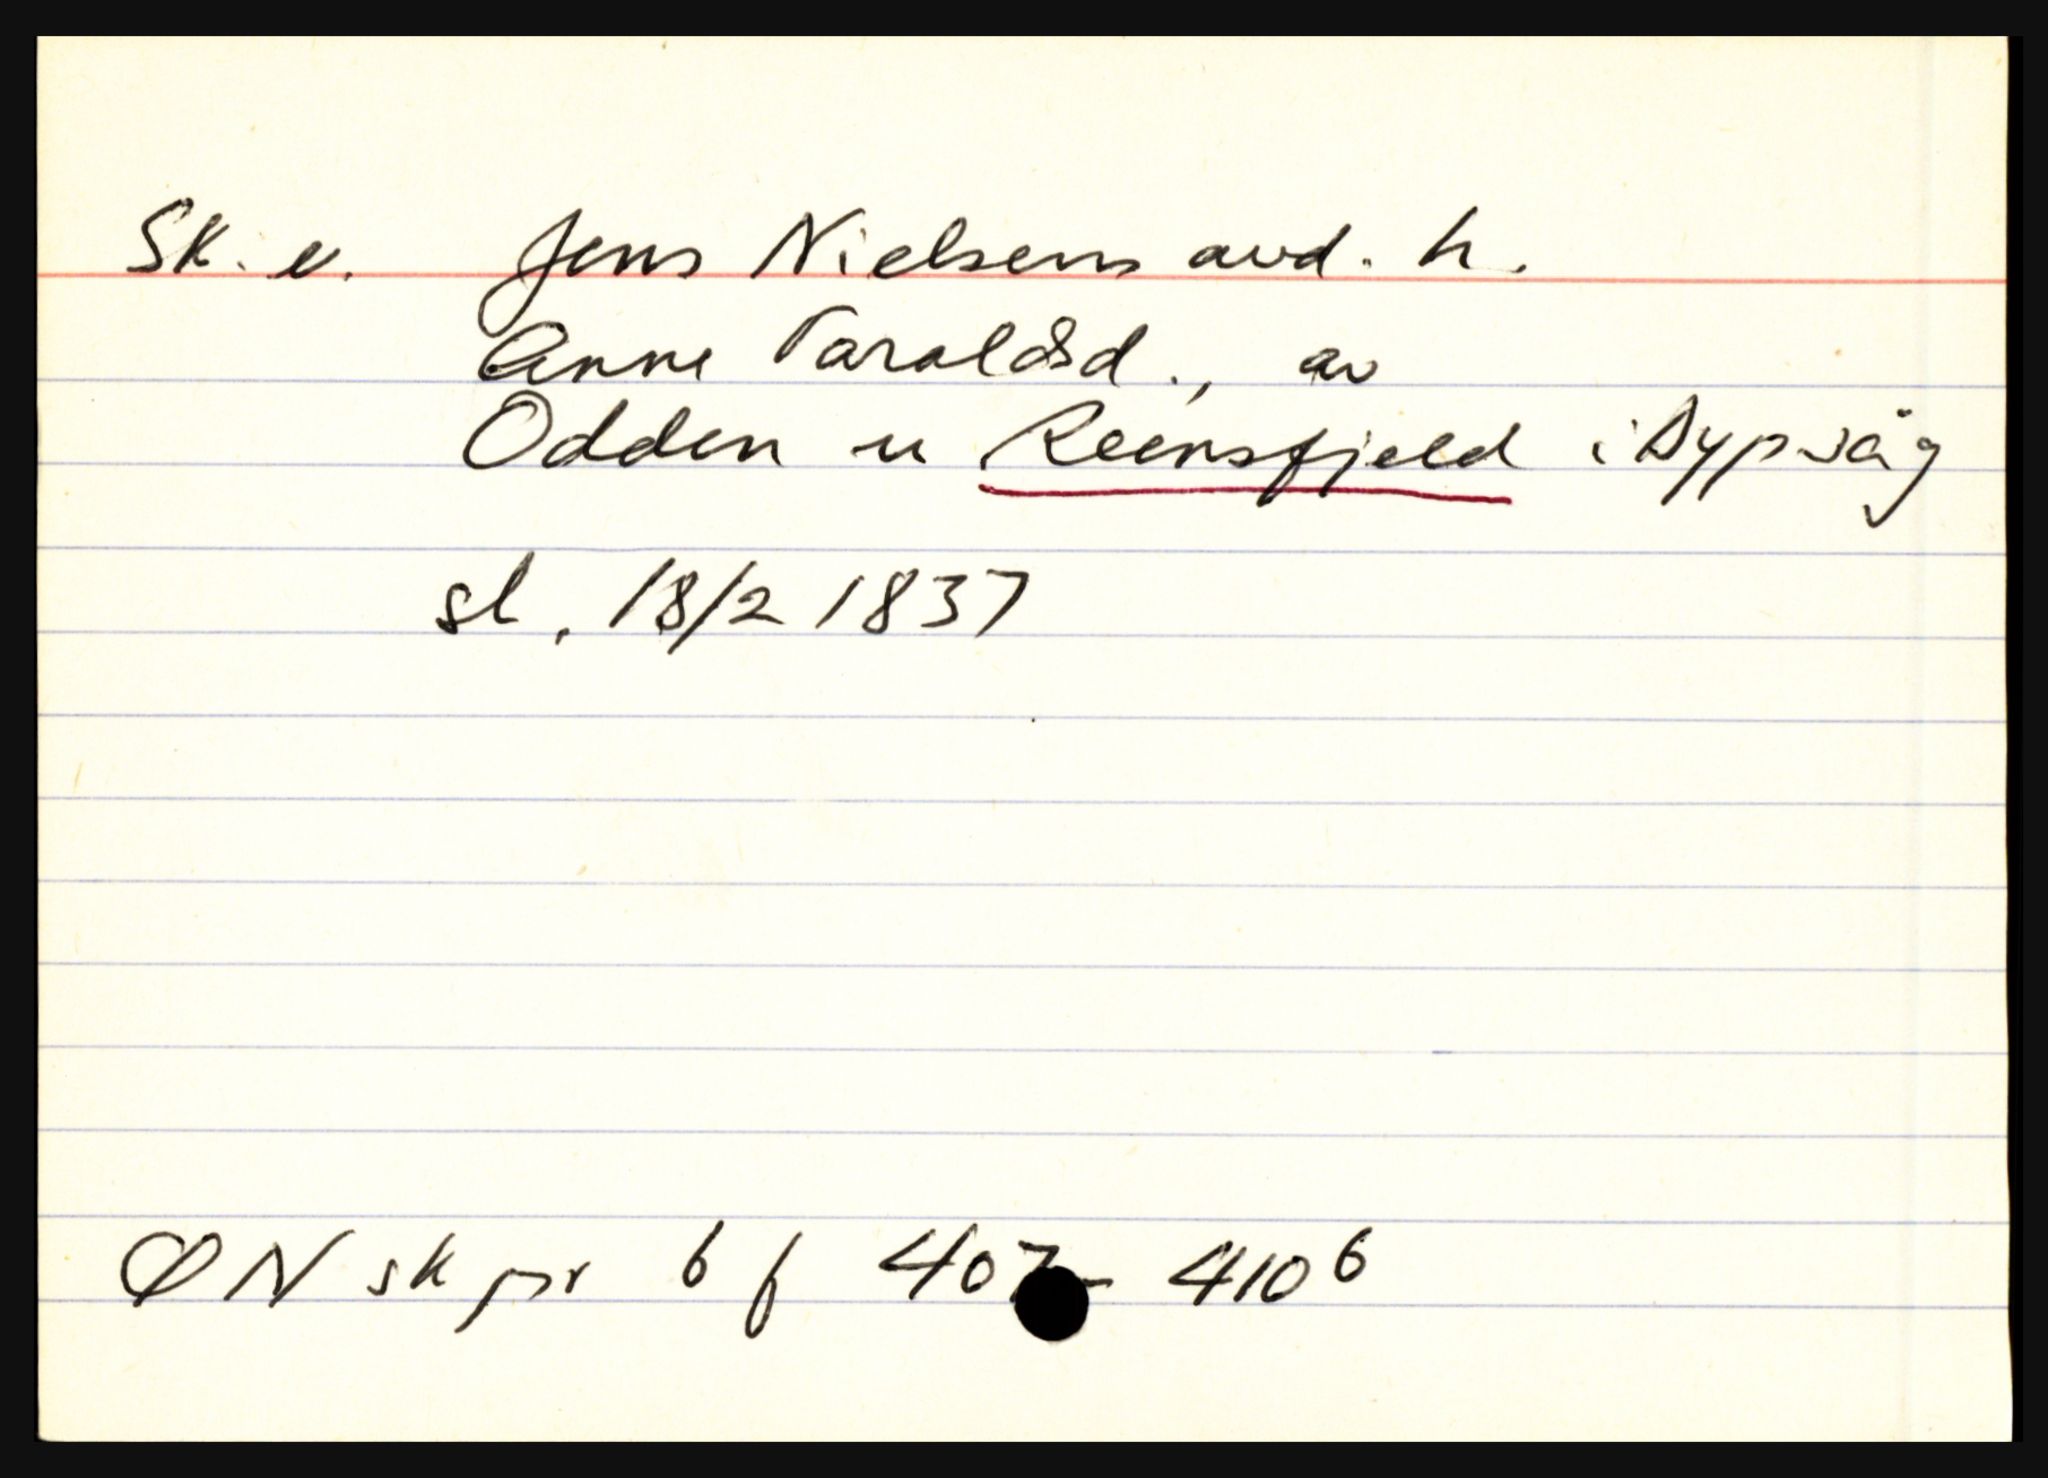 Sk. e. Jens Nielsens avd. h.
Anne Taraldsd., av
Odden u Reensfjeld i Dypvåg
sl. 18/2 1837
ØN sk pr 6 f 407 - 410 6